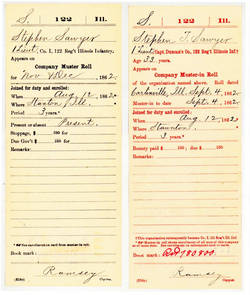 S. 122 Ill.
Stephen Sawyer
1 Lieut, Co. I, 122 Reg't Illinois Infantry.
Appears on
Company Muster Roll
for Nov & Dec, 1862.
Joined for duty and enrolled:
When Aug. 12, 1862
Where Staunton Ill.
Period 3 years.*
Present or absent Present.
Stoppage, $ 100 for
Due Gov't $ 100 for
Remarks:
Book mark:
Ramsey
Copyist.
S. 122 Ill.
Stephen T. Sawyer
1 Lieut, Co. I, 122 Reg't Illinois Inf.†
Age 33 years.
Appears on
Company Muster-in Roll
of the organization named above. Roll dated
Carlinville, Ill. Sept. 4, 1862.
Muster-in to date Sept. 4, 1862.
Joined for duty and enrolled:
When Aug. 12, 1862
Where Staunton.
Period 3 years.*
Bounty paid $ 100; due $ 100
Remarks:
Book mark:
Ramsey
Copyist.